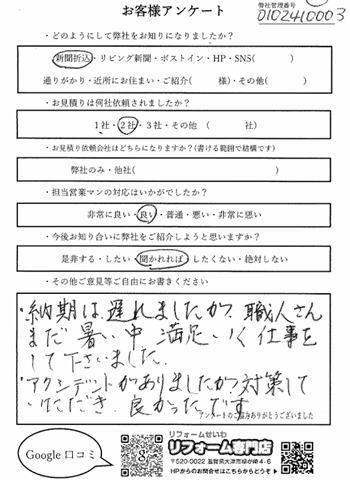 お客様アンケート
弊社管理番号
0102410003
・どのようにして弊社をお知りになりましたか？
新聞折込・リビング新聞・ポストイン・HP・SNS(　　　)
通りがかり・近所にお住まい・ご紹介(　　　様)・その他(　　　)
・お見積りは何社依頼されましたか？
1社・2社・3社・その他　(　　　社)
・お見積り依頼会社はどちらになりますか？(書ける範囲で結構です)
弊社のみ・他社(　　　)
・担当営業マンの対応はいかがでしたか？
非常に良い・良い・普通・悪い・非常に悪い
・今後お知り合いに弊社をご紹介しようと思いますか？
是非する・したい・聞かれれば・したくない・絶対しない
・その他ご意見等ご自由にお書きください
・納期は、遅れましたが、職人さん
まだ暑い中 満足いく仕事を
して下さいました。
・アクシデントがありましたが対策して
いただき、良かったです。
アンケートのご協力ありがとうございました
Google 口コミ
リフォームせいわ
リフォーム専門店
〒520-0022 滋賀県大津市柳が崎4-6
HPからのお問合せはこちらからどうぞ